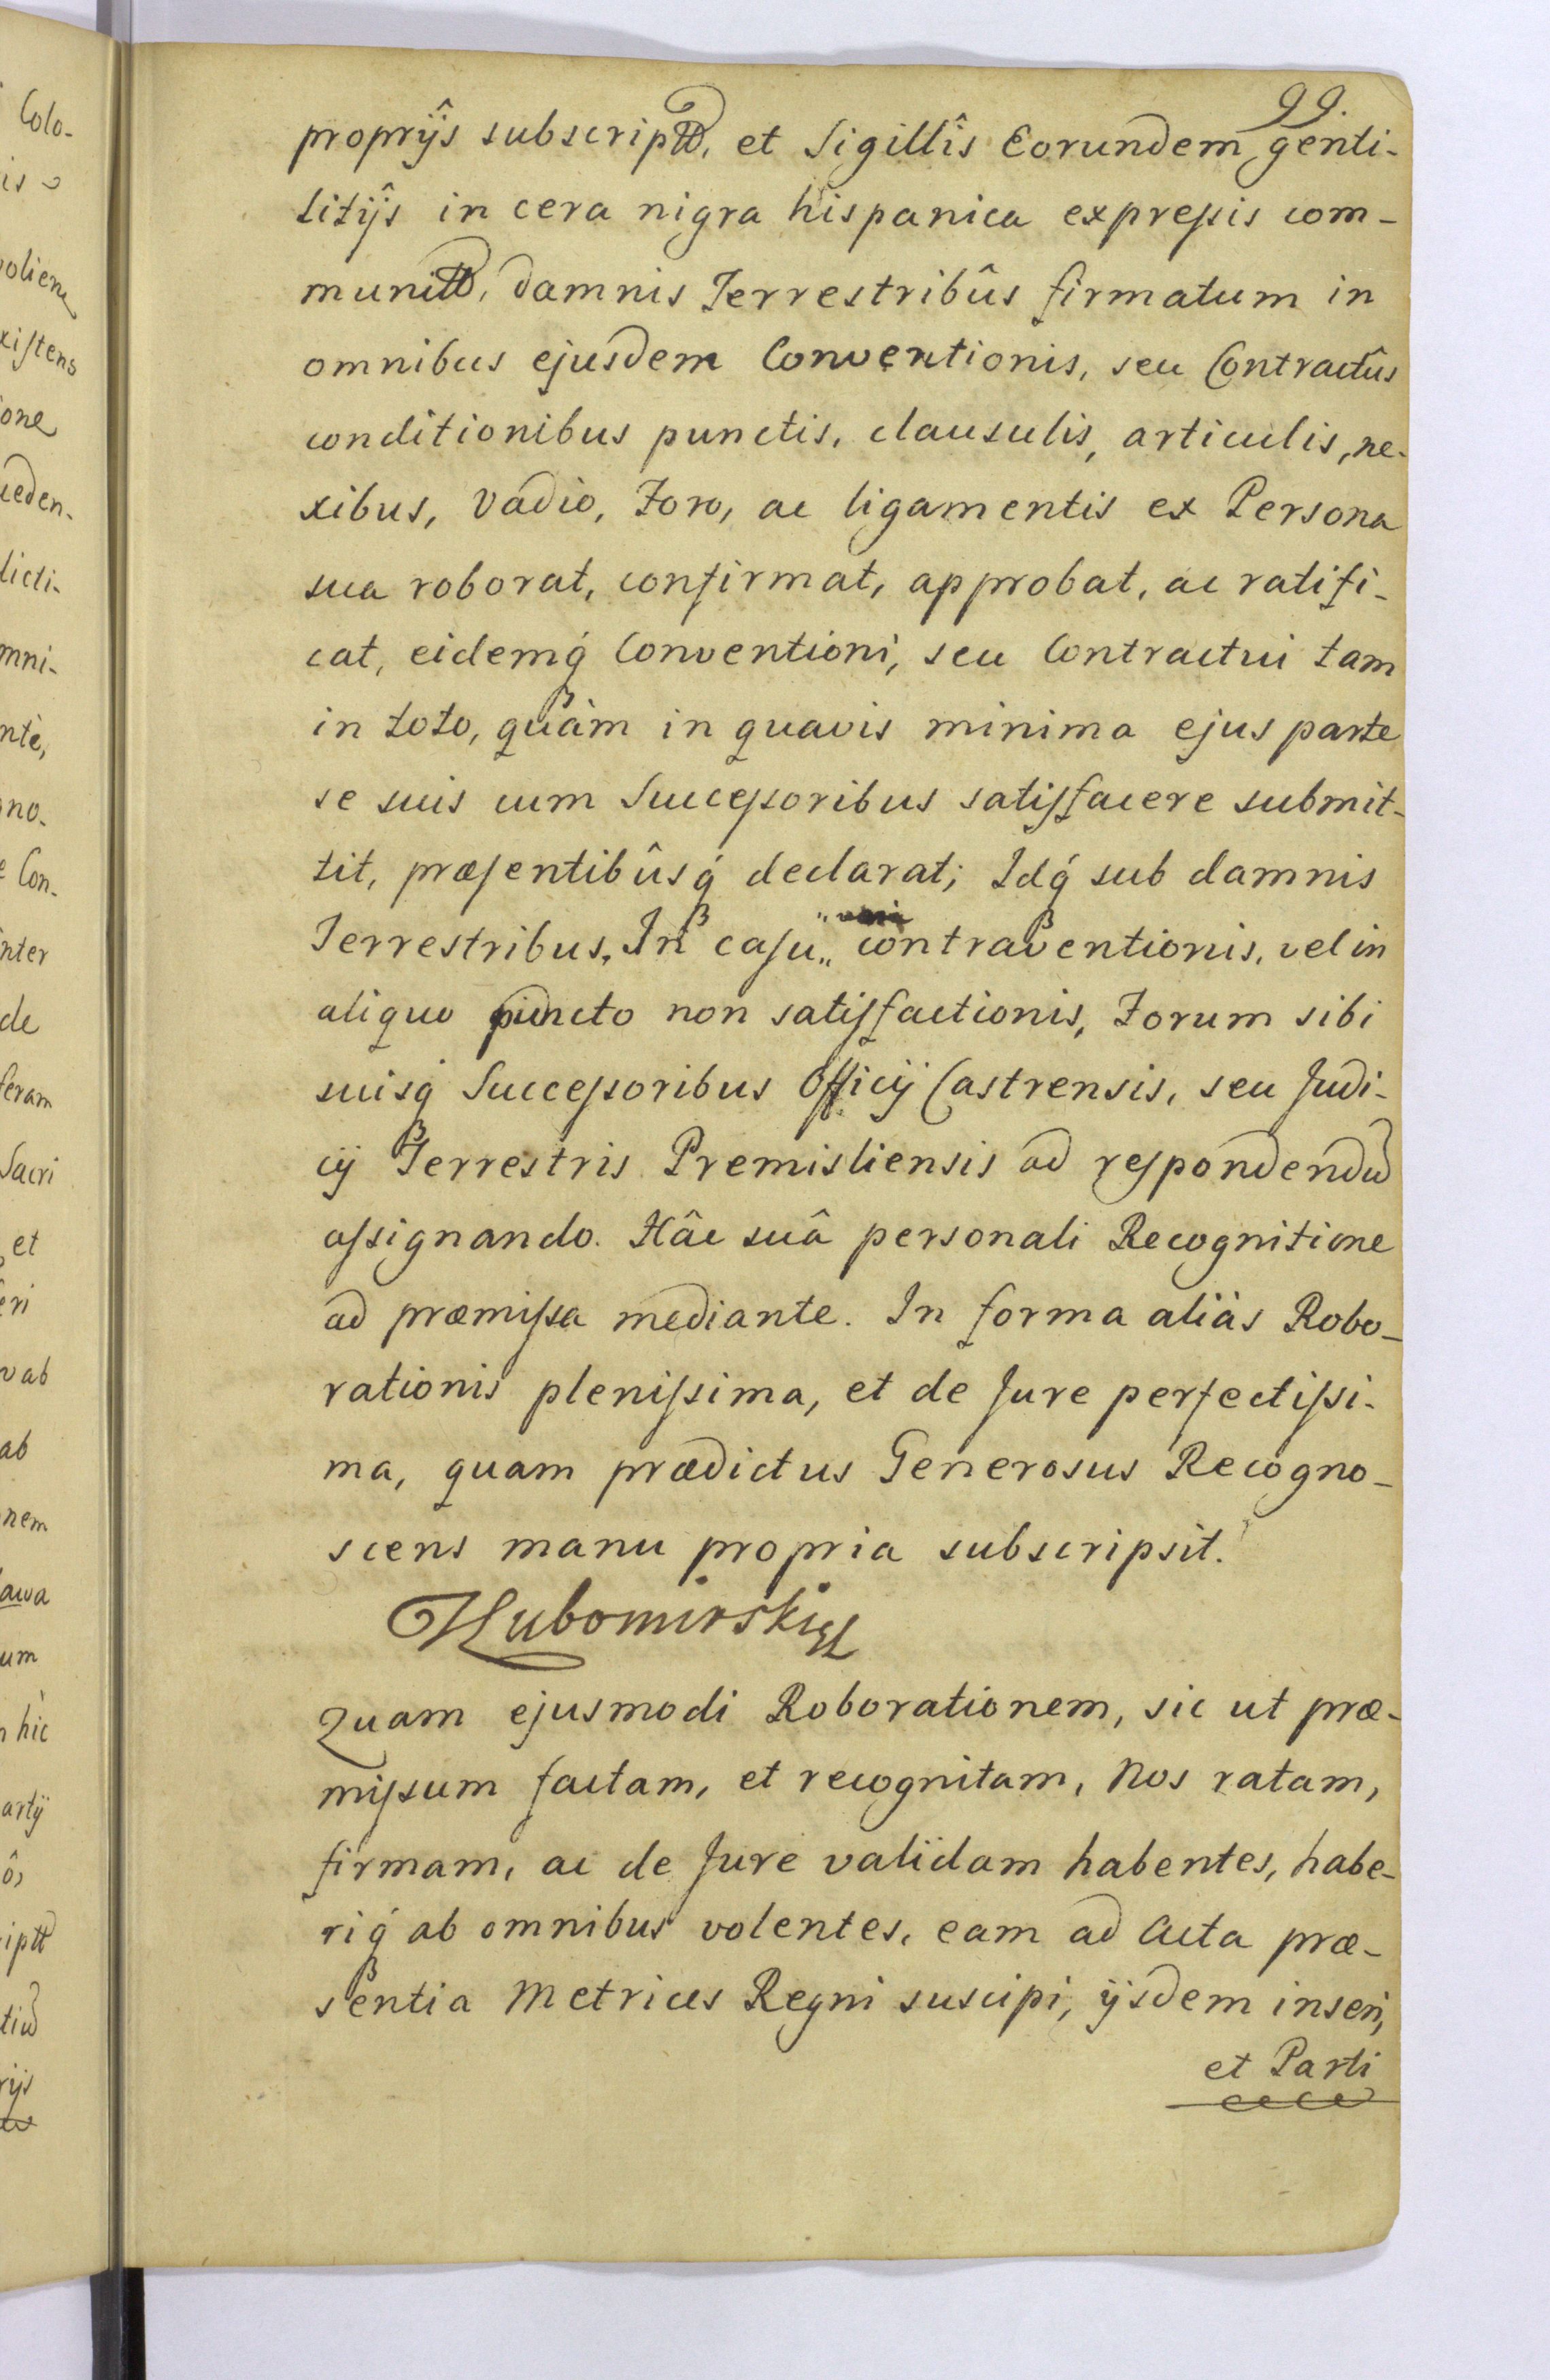 99.
proprijs subscriptt, et Sigillîs Eorundem genti-
litijs in cera nigra hispanica expreſsis com-
munitt, damnis Terrestribûs firmatum in
omnibus ejusdem Conventionis, seu Contractûs
conditionibus punctis, clausulis, articulis, ne-
xibus, Vadio, Foro, ac ligamentis ex Persona
sua roborat, confirmat, approbat, ac ratifi-
cat, eidemq́ Conventioni, seu Contractui tam
in toto, quàm in quavis minima ejus parte
se suis cum Succeſsoribus satisfacere submit-
tit, præsentibûsq́ declarat; Idq́ sub damnis
Terrestribus. In casu„ contraventionis, vel in
aliquo puncto non satisfactionis, Forum sibi
suisq́ Succeſsoribus Officij Castrensis, seu Judi-
cij Terrestris Premisliensis ad respondendū
aſsignando. Hâc suâ personali Recognitione
ad præmiſsa mediante. In forma aliàs Robo-
rationis pleniſsima, et de Jure perfectiſsi-
ma, quam prædictus Generosus Recogno-
scens manu propria subscripsit.
Lubomirski
Quam ejusmodi Roborationem, sic ut præ-
miſsum factam, et recognitam, Nos ratam,
firmam, ac de Jure validam habentes, habe-
riq́ ab omnibus volentes, eam ad Acta præ-
sentia Metrices Regni suscipi, ijsdem inseri,
et Parti